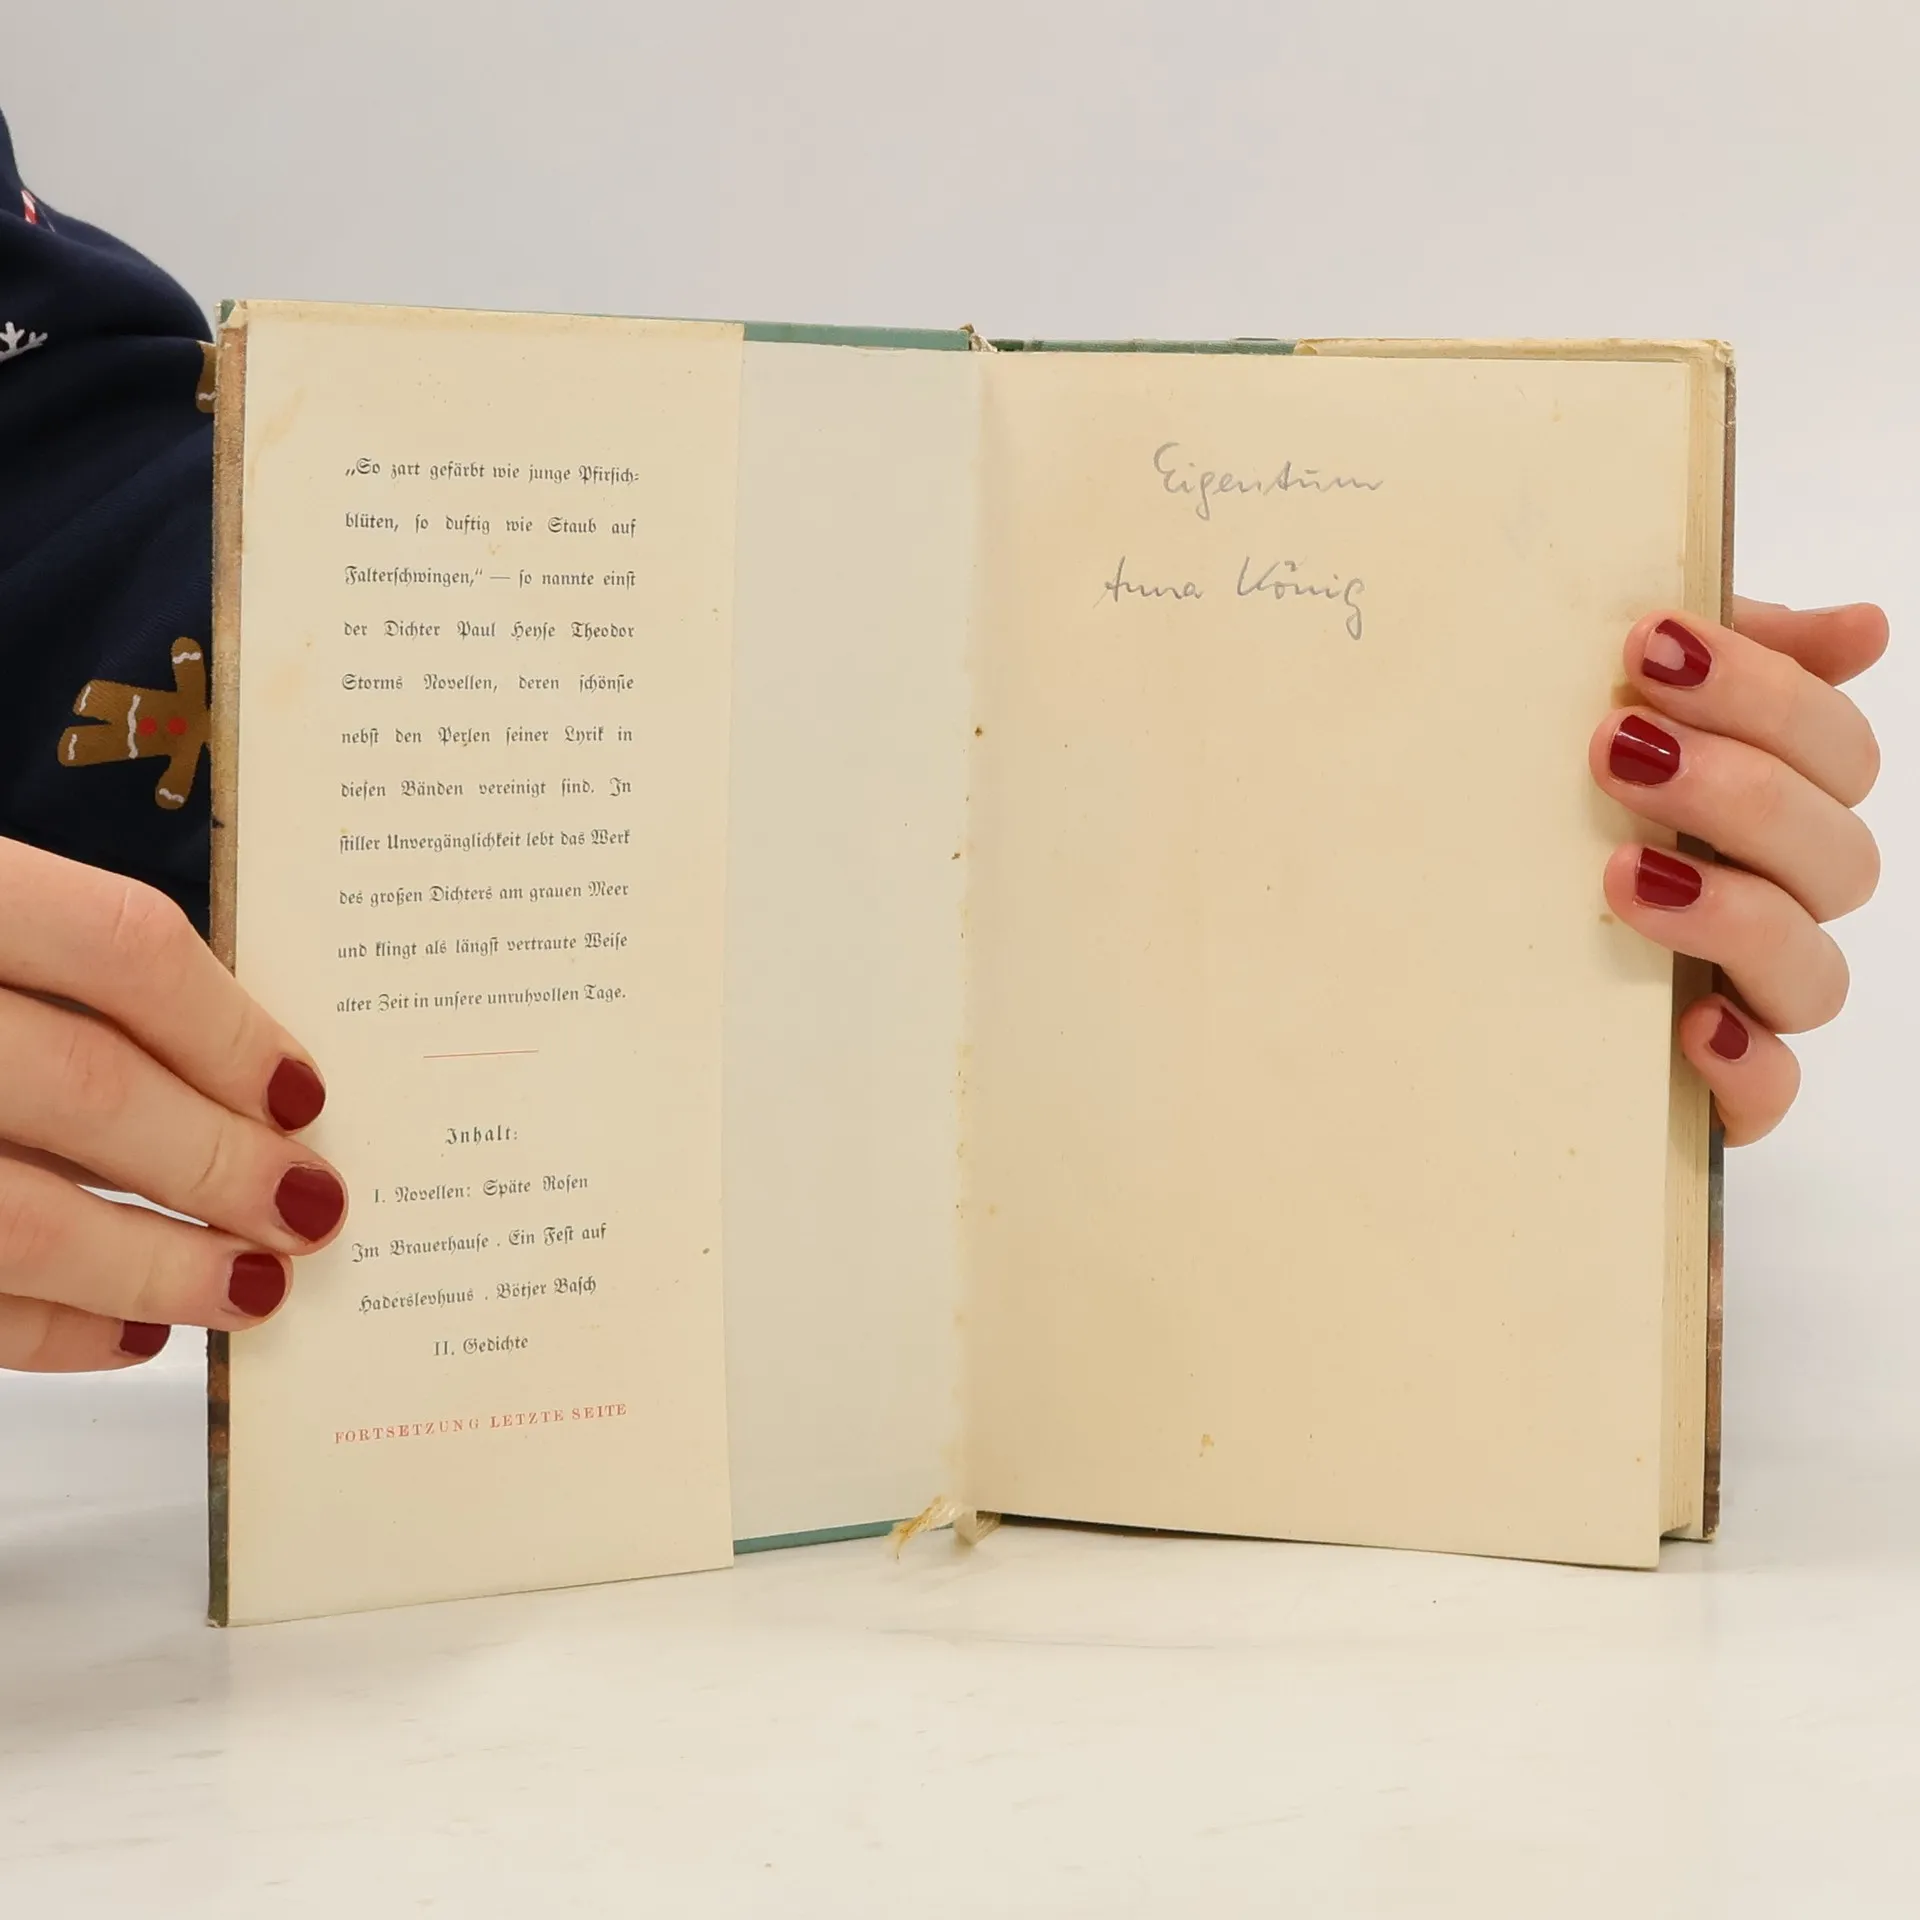 „So zart gefärbt wie junge Pfirsich-
blüten, so duftig wie Staub auf
Falterschwingen,“ — so nannte einst
der Dichter Paul Heyse Theodor
Storms Novellen, deren schönste
nebst den Perlen seiner Lyrik in
diesen Bänden vereinigt sind. In
stiller Unvergänglichkeit lebt das Werk
des großen Dichters am grauen Meer
und klingt als längst vertraute Weise
alter Zeit in unsere unruhvollen Tage.
Inhalt:
I. Novellen: Späte Rosen
Im Brauerhause . Ein Fest auf
Haderslevhuus . Bötjer Basch
II. Gedichte
FORTSETZUNG LETZTE SEITE
Eigentum
Anna König